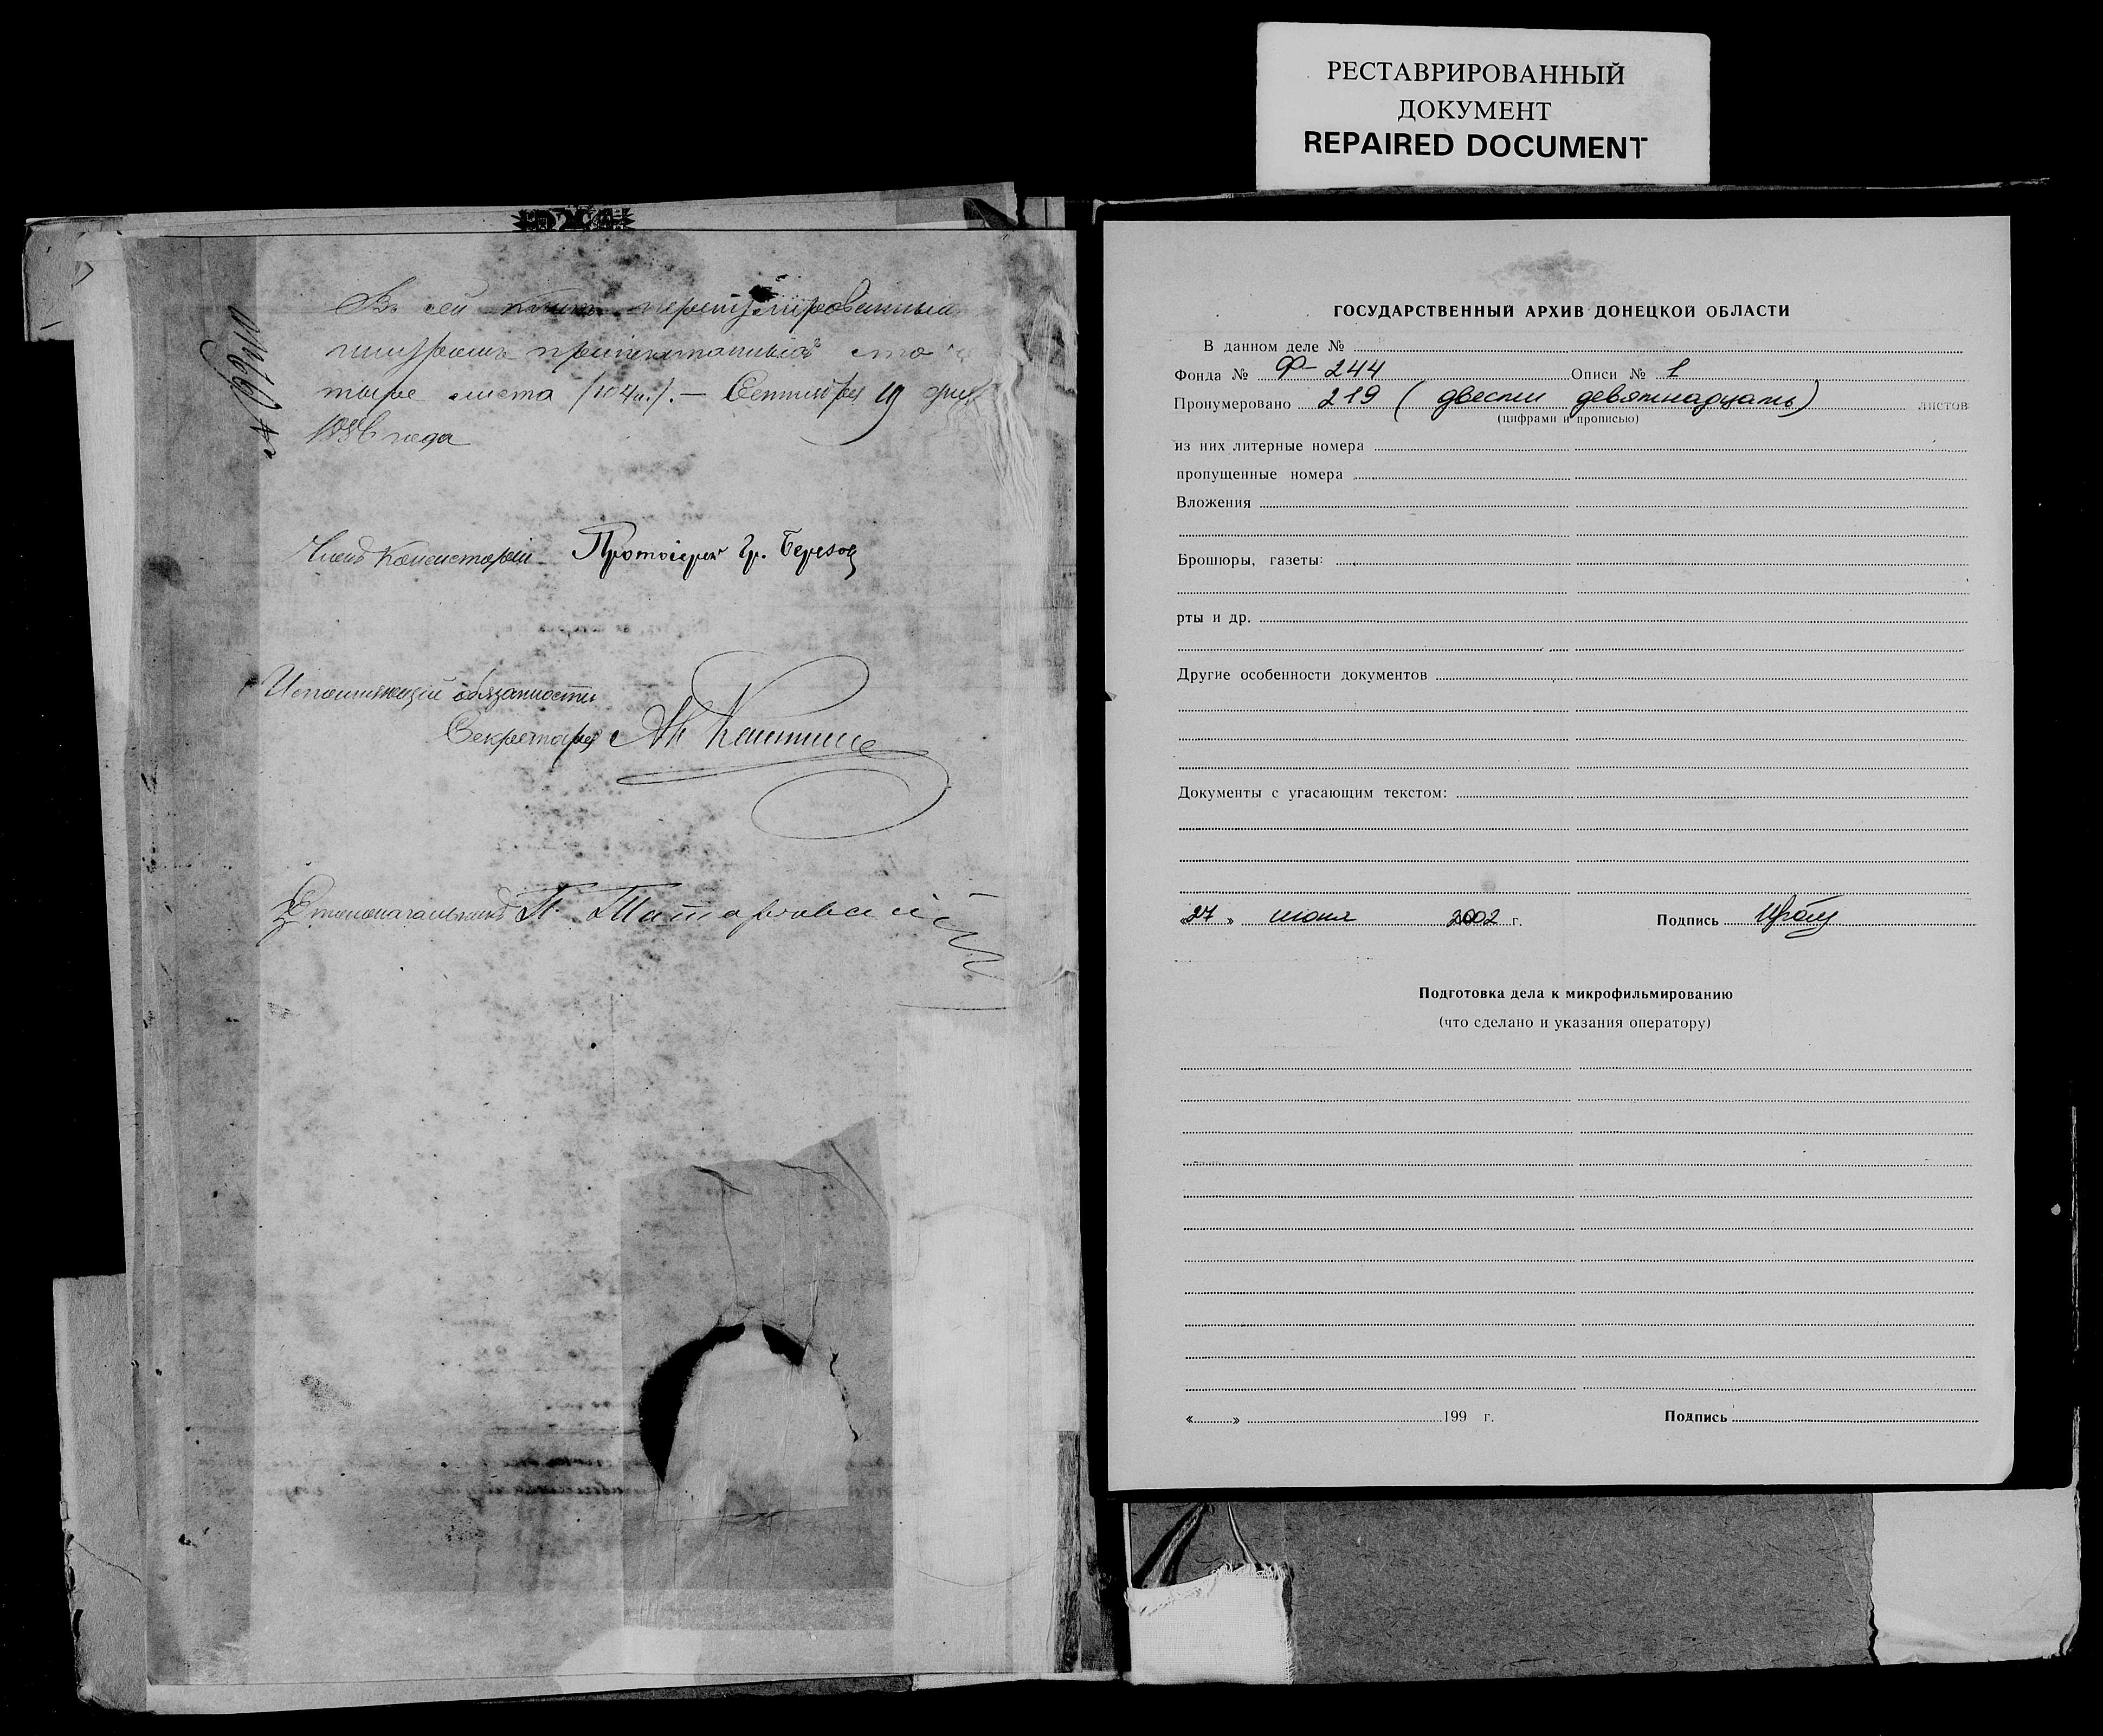 РЕСТАВРИРОВАННЫЙ
ДОКУМЕНТ
REPAIRED DOCUMENT
Въ сей
сто
тыре листа /104л./. — Сентября 19 дня
1886 года
Членъ Консисторіи Протоіерей Гр.
Исполняющій обязанности
Секретаря
Столоначальникъ
ГОСУДАРСТВЕННЫЙ АРХИВ ДОНЕЦКОЙ ОБЛАСТИ
В данном деле №
Фонда № Ф-244 Описи № 1
Пронумеровано 219 (двести девятнадцать) листов
(цифрами и прописью)
из них литерные номера
пропущенные номера
Вложения
Брошюры, газеты:
рты и др.
Другие особенности документов
Документы с угасающим текстом:
«27» июня 2002 г. Подпись
Подготовка дела к микрофильмированию
(что сделано и указания оператору)
« » 199 г. Подпись